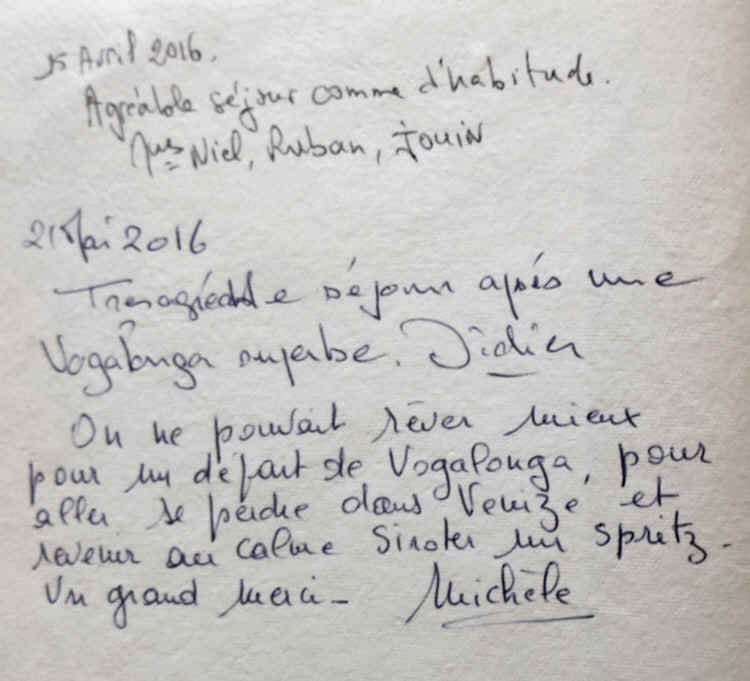 15 Avril 2016.
Agréable séjour comme d'habitude.
Niel, Ruban, Jouin
21 Mai 2016
Tres agréable séjour après une
Vogalonga superbe. Didier
On ne pouvait rêver mieux
pour un départ de Vogalonga, pour
aller se perdre dans Venize et
revenir au calme Siroter un spritz -
Un grand merci - Michèle